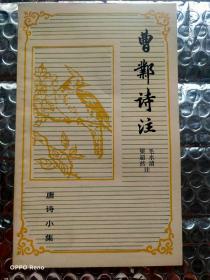 曹鄴诗注
梁超然
毛水清 注
唐诗小集
OPPO Reno